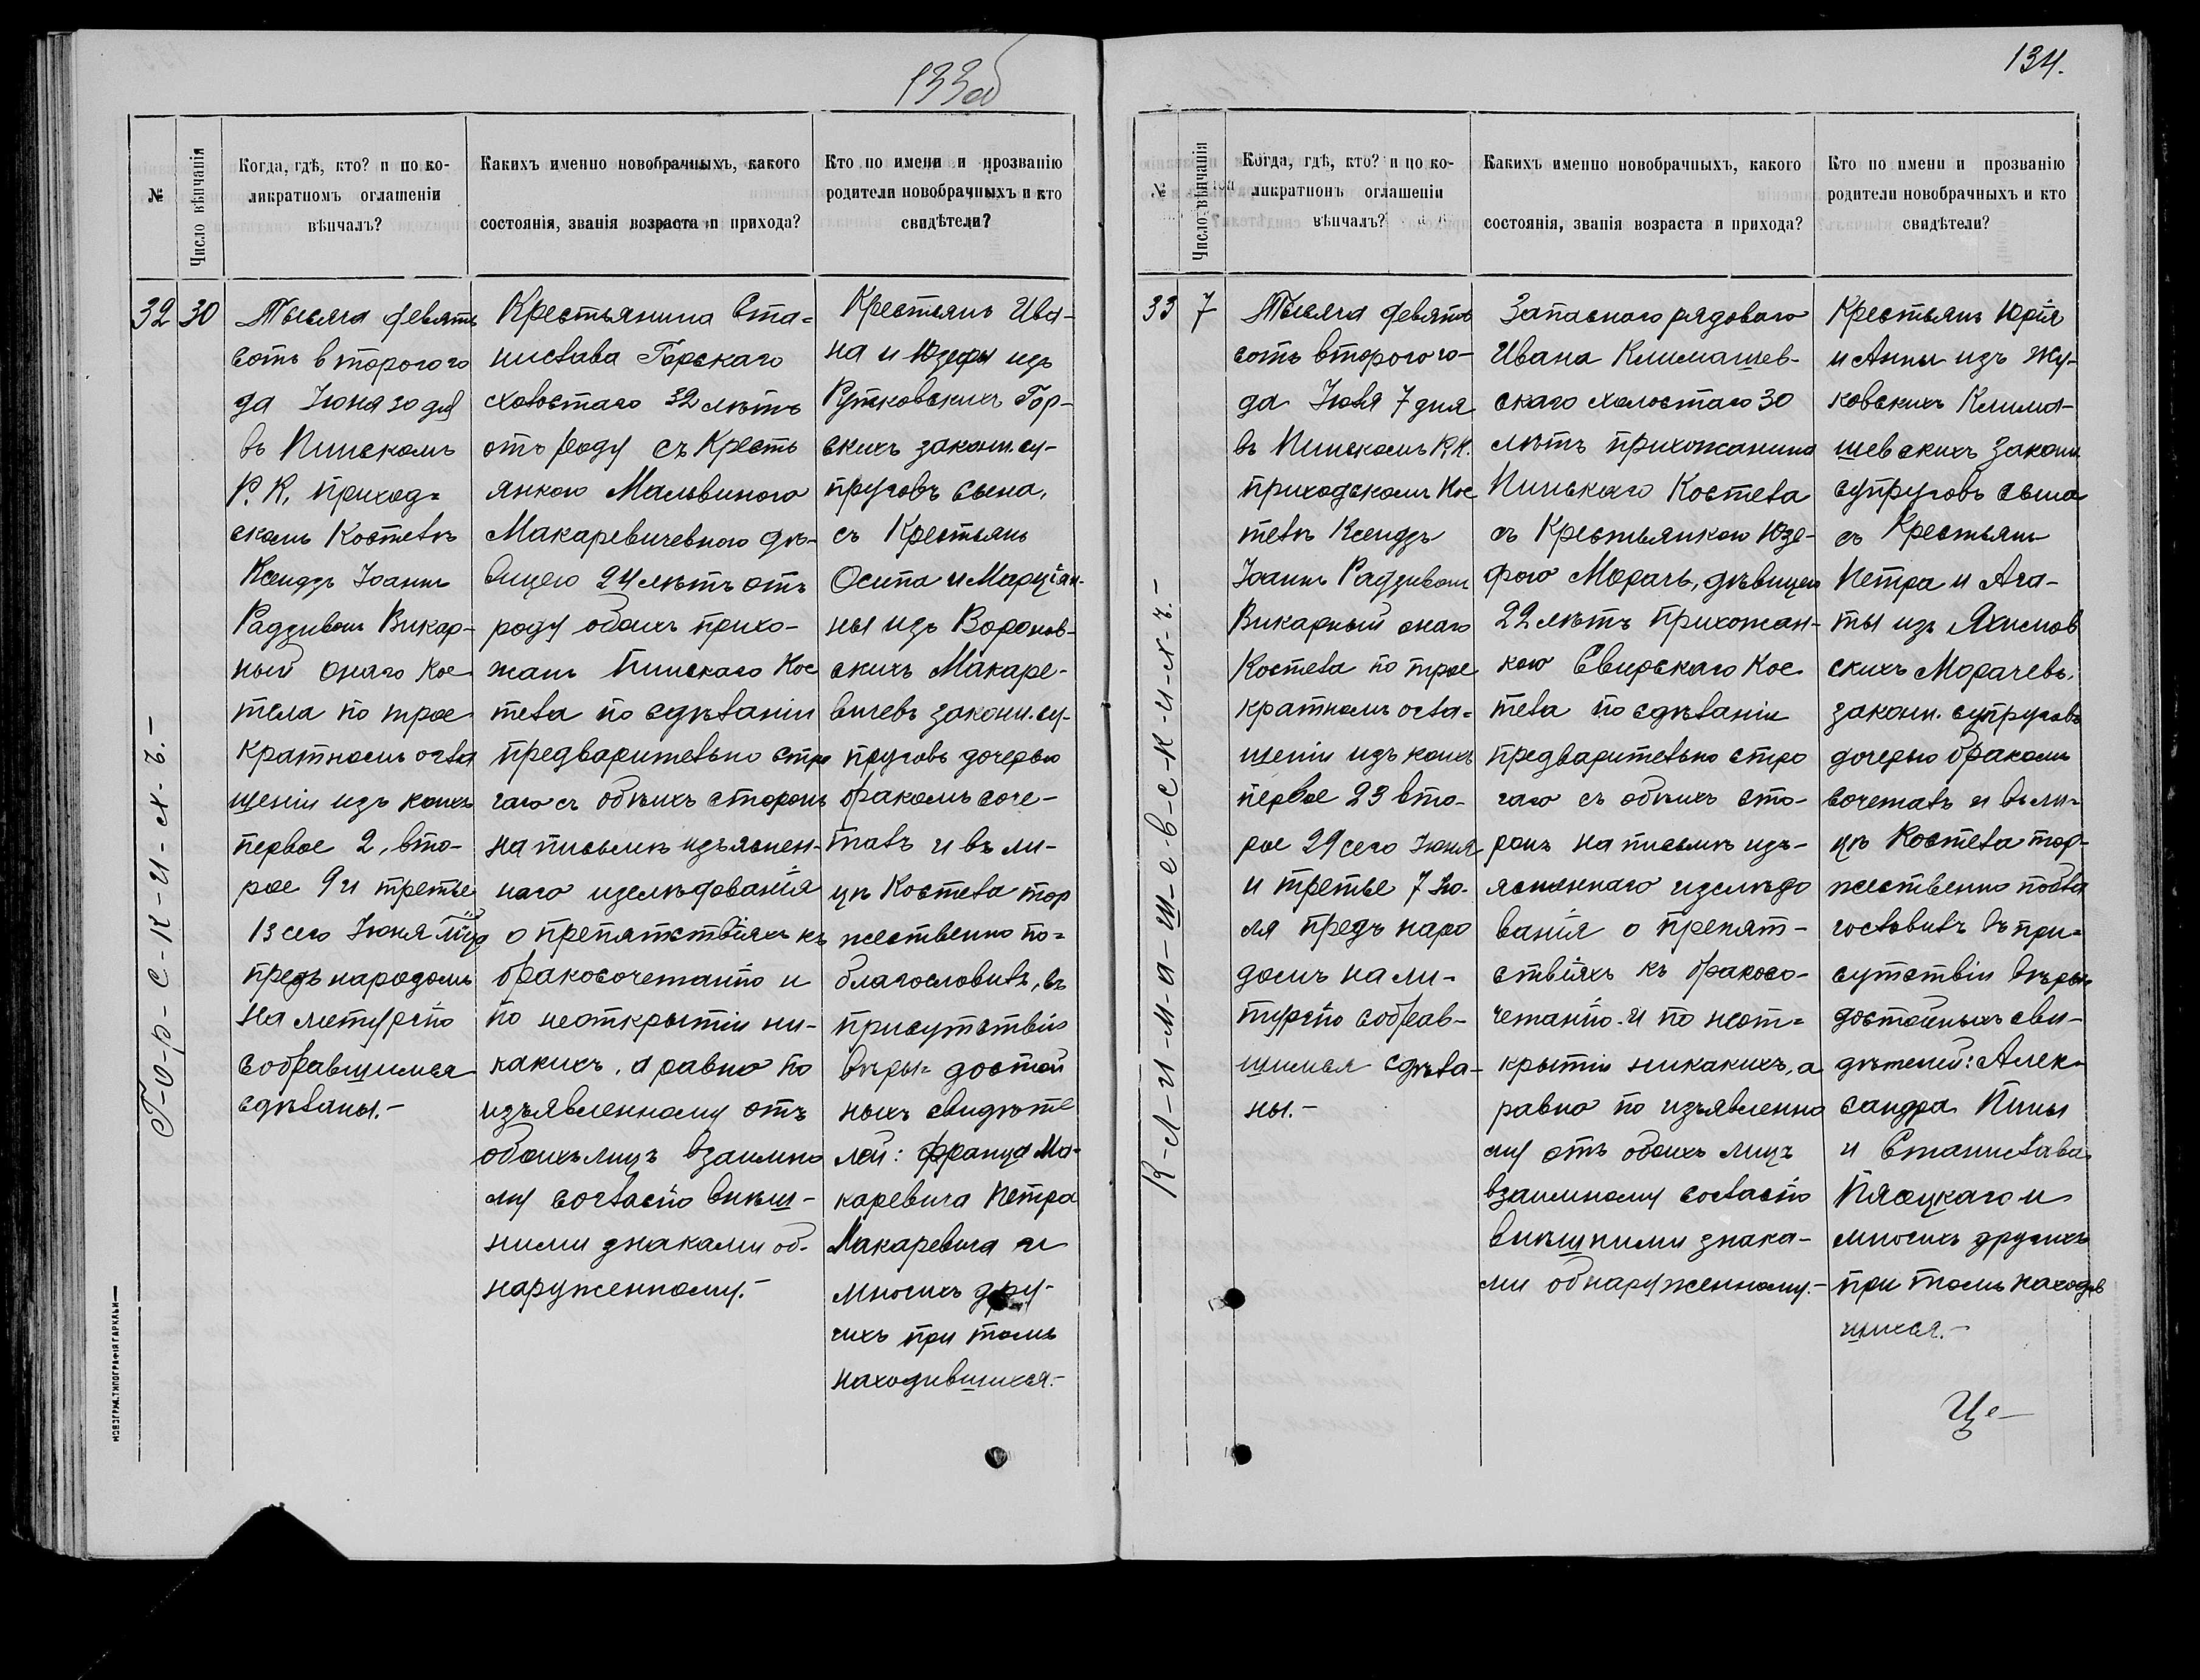 133об
№
Число вѣнчанія
Когда, гдѣ, кто? и по ко-
ликратномъ оглашеніи
вѣнчалъ?
Какихъ именно новобрачныхъ, какого
состоянія, званія возраста и прихода?
Кто по имени и прозванію
родители новобрачныхъ и кто
свидѣтели?
32
30
Г-о-р-с-к-и-х-ъ.-
Тысяча девять
сотъ второго го
да Іюня 30 дня
въ Пинскомъ
Р. К. приход=
скомъ Костелѣ
Ксендзъ Іоаннъ
Радзивонъ Викар-
ный онаго Кос
тела по трое
кратномъ огла
шеніи изъ коихъ
первое 2, вто-
рое 9 и третье
13 сего Іюня
предъ народомъ
на литургію
собравшимся
сдѣланы.-
Крестьянина Ста=
нислава Горскаго
холостаго 32 лѣтъ
отъ роду съ Кресть
янкою Мальвиною
Макаревичевною дѣ-
вицею 24 лѣтъ отъ
роду обоихъ прихо-
жанъ Пинскаго Кос
тела по сдѣланіи
предварительно стро
гаго съ обѣихъ сторонъ
на письмѣ изъяснен-
наго изслѣдованія
о препятствіяхъ къ
бракосочетанію и
по неоткрытіи ни-
какихъ, а равно по
изъявленному отъ
обоихъ лицъ взаимно
му согласію внѣш-
ними знаками об-
наруженному.-
Крестьянъ Ива-
на и Юзефы изъ
Рутковскихъ Гор-
скихъ законн. су-
пруговъ сына,
съ Крестьянъ
Осипа и Марціан-
ны изъ Воронов-
скихъ Макаре-
вичевъ законн. су-
пруговъ дочерью
бракомъ соче-
талъ и въ ли-
цѣ Костела тор
жественно по=
благословилъ, въ
присутствіи
вѣры= достой
ныхъ свидѣте
лей: Франца Ма-
каревича Петра
Макаревича и
многихъ дру-
гихъ при томъ
находившихся.-
НОВОГРАД. ТИПОГРАФІЯ ГАРКАВИ
134.
№
Число вѣнчанія
Когда, гдѣ, кто? и по ко-
ликратномъ оглашеніи
вѣнчалъ?
Какихъ именно новобрачныхъ, какого
состоянія, званія возраста и прихода?
Кто по имени и прозванію
родители новобрачныхъ и кто
свидѣтели?
33
7
К-л-и-м-а-ш-е-в-с-к-и-х-ъ.-
Тысяча девять
сотъ второго го-
да Іюля 7 дня
въ Пинскомъ Р.К.
приходскомъ Кос
телѣ Ксендзъ
Іоаннъ Радзивонъ
Викарный онаго
Костела по трое
кратномъ огла=
шеніи изъ коихъ
первое 23 вто-
рое 29 сего Іюня
и третье 7 Ію-
ля предъ наро
домъ на ли-
тургію собрав-
шимся сдѣла-
ны.-
Запаснаго рядоваго
Ивана Климашев-
скаго холостаго 30
лѣтъ прихожанина
Пинскаго Костела
съ Крестьянкою Юзе-
фою Морачъ, дѣвицею
22 лѣтъ прихожан-
кою Свирскаго Кос
тела по сдѣланіи
предварительно стро
гаго съ обѣихъ сто-
ронъ на письмѣ изъ-
ясненнаго изслѣдо
ванія о препят-
ствіяхъ къ бракосо-
четанію. и по неот=
крытіи никакихъ, а
равно по изъявленно
му отъ обоихъ лицъ
взаимному согласію
внѣшними знака-
ми обнаруженному.-
Крестьянъ Юрія
и Анны изъ Жу-
ковскихъ Клима-
шевскихъ законн.
супруговъ сына
съ Крестьянъ
Петра и Ага-
ты изъ Яхимов
скихъ Морачевъ.
законн. супруговъ
дочерью бракомъ
сочеталъ и въ ли=
цѣ Костела тор-
жественно побла
гословилъ въ при=
сутствіи вѣры
достойныхъ сви-
дѣтелей: Алек-
сандра Пины
и Станислава
Пясецкаго и
многихъ другихъ
при томъ находив
шихся.-